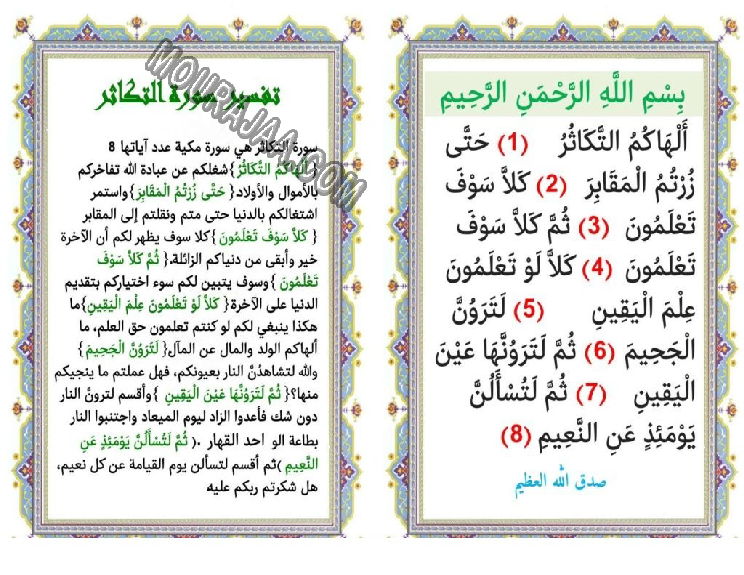 بِسْمِ اللَّهِ الرَّحْمَنِ الرَّحِيمِ
أَلْهَاكُمُ التَّكَاثُرُ (1) حَتَّى
زُرْتُمُ الْمَقَابِرَ (2) كَلاَّ سَوْفَ
تَعْلَمُونَ (3) ثُمَّ كَلاَّ سَوْفَ
تَعْلَمُونَ (4) كَلاَّ لَوْ تَعْلَمُونَ
عِلْمَ الْيَقِينِ (5) لَتَرَوُنَّ
الْجَحِيمَ (6) ثُمَّ لَتَرَوُنَّهَا عَيْنَ
الْيَقِينِ (7) ثُمَّ لَتُسْأَلُنَّ
يَوْمَئِذٍ عَنِ النَّعِيمِ (8)
صدق الله العظيم
تفسير سورة التكاثر
سورة التكاثر هي سورة مكية عدد آياتها 8
{ أَلْهَاكُمُ التَّكَاثُرُ }شغلكم عن عبادة الله تفاخركم
بالأموال والأولاد.{ حَتَّى زُرْتُمُ الْمَقَابِرَ}واستمر
اشتغالكم بالدنيا حتى متم ونقلتم إلى المقابر
{ كَلاَّ سَوْفَ تَعْلَمُونَ }كلا سوف يظهر لكم أن الآخرة
خير وأبقى من دنياكم الزائلة.{ ثُمَّ كَلاَّ سَوْفَ
تَعْلَمُونَ }وسوف يتبين لكم سوء اختياركم بتقديم
الدنيا على الآخرة{ كَلاَّ لَوْ تَعْلَمُونَ عِلْمَ الْيَقِينِ}ما
هكذا ينبغي لكم لو كنتم تعلمون حق العلم، ما
ألهاكم الولد والمال عن المآل{ لَتَرَوُنَّ الْجَحِيمَ}
والله لتشاهدُنَّ النار بعيونكم، فهل عملتم ما ينجيكم
منها؟{ ثُمَّ لَتَرَوُنَّهَا عَيْنَ الْيَقِينِ }وأقسم لترونُ النار
دون شك فأعدوا الزاد ليوم الميعاد واجتنبوا النار
بطاعة الو احد القهار .( ثُمَّ لَتُسْأَلُنَّ يَوْمَئِذٍ عَنِ
النَّعِيمِ )ثم أقسم لتسألن يوم القيامة عن كل نعيم،
هل شكرتم ربكم عليه.
MOURAJAA.COM